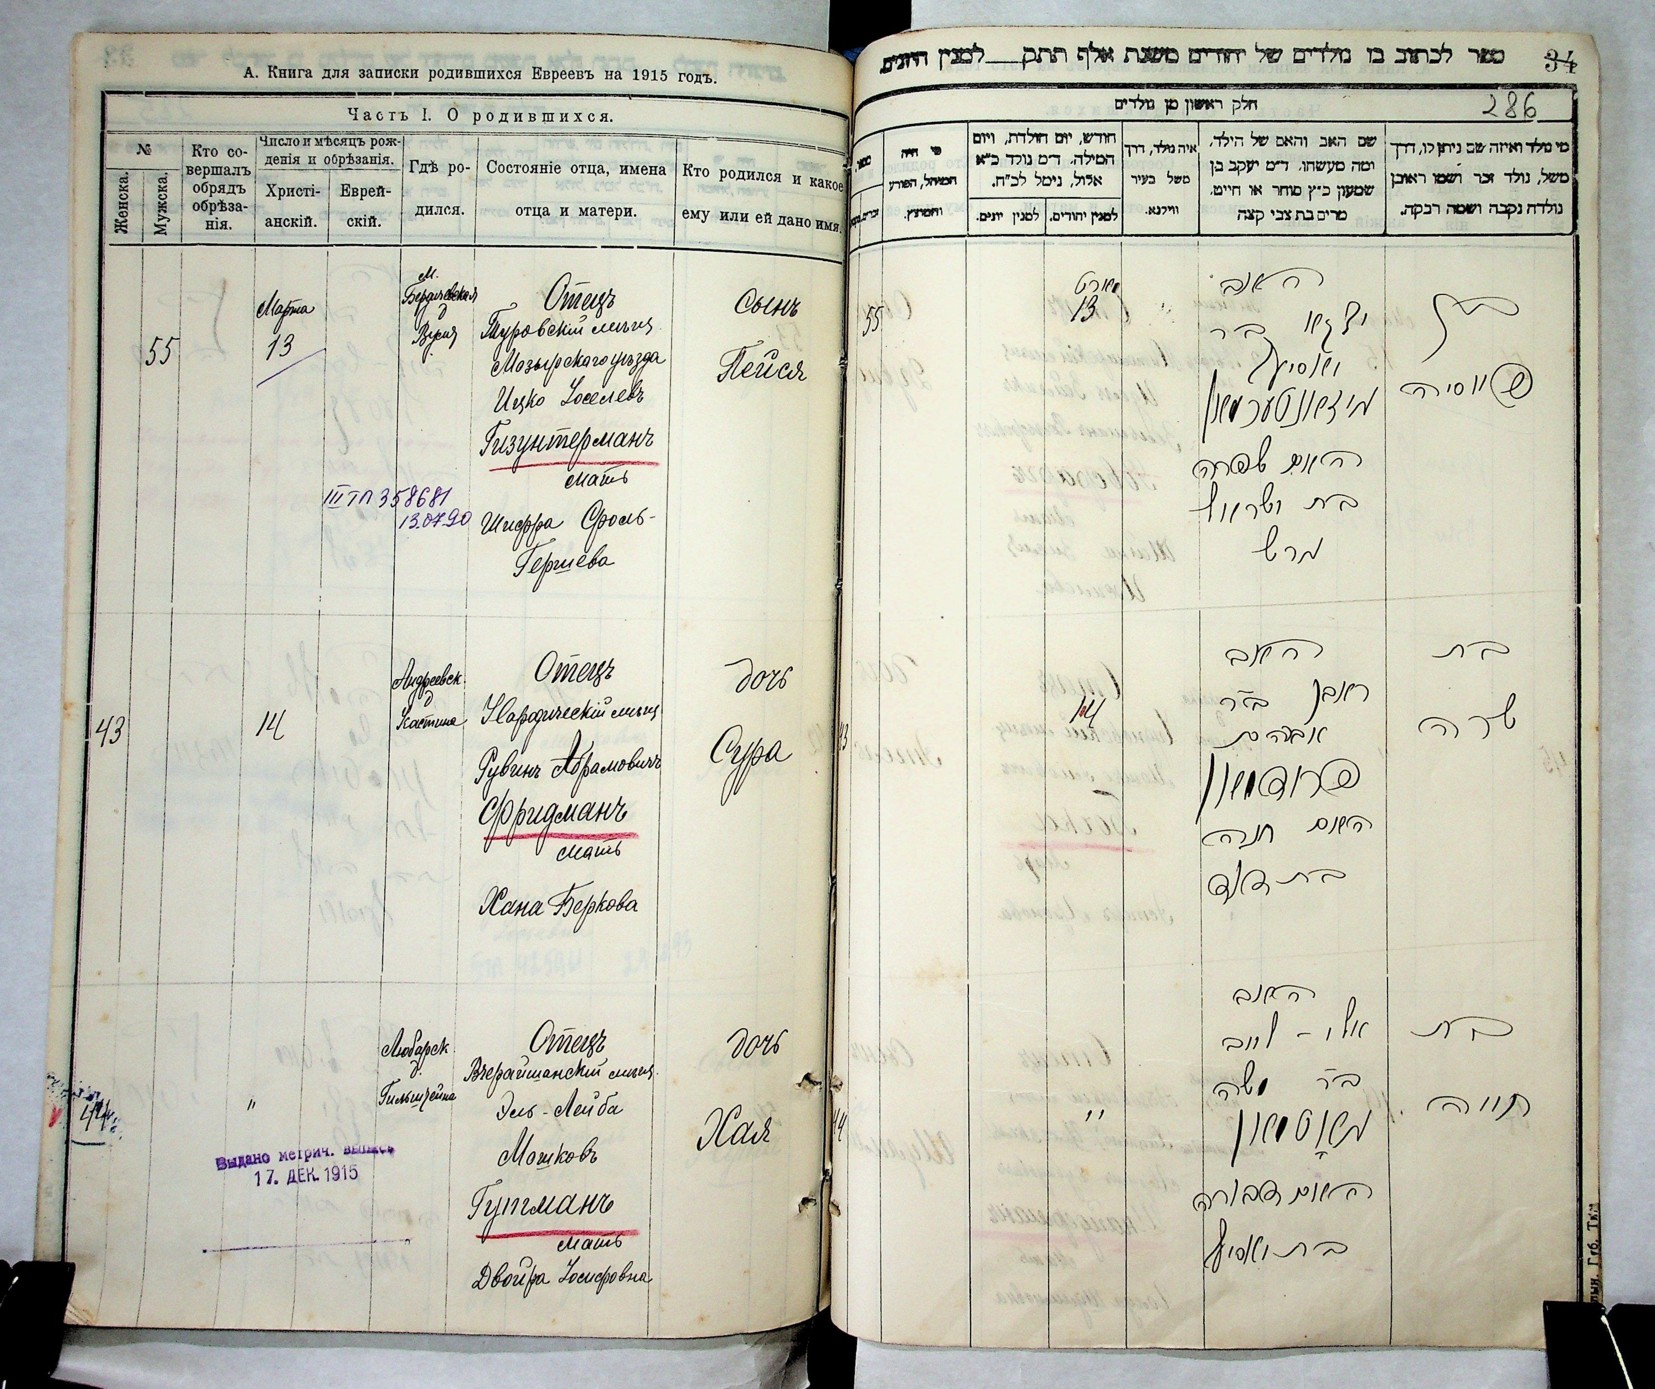 А. Книга для записки родившихся Евреевъ на 1915 годъ.
Часть I. О родившихся.
№
Женска.
Мужска.
Кто совершалъ обрядъ обрѣзанія.
Число и мѣсяцъ рожденія и обрѣзанія.
Христіанскій.
Еврейскій.
Гдѣ родился.
Состояніе отца, имена отца и матери.
Кто родился и какое ему или ей дано имя.
55
Марта
13
М.
Бердичевская
д
Отецъ
Туровскій мѣщ.
Мозырскаго уѣзда
Ицко Іоселевъ
Гизунтерманъ
Мать
Шифра Сроль-
Гершева
Сынъ
Пейся
III ТП 358681
13.07.90
43
14
Андреевск.
д
Отецъ
Народическій мѣщ
Рувинъ Абрамовичъ
Фридманъ
Мать
Хана Беркова
дочь
Сура
44
"
Любарск
д.
Отецъ
Вчерайшанскій мѣщ.
Эль-Лейба
Мошковъ
Гутманъ
Мать
Двойра Іосифовна
дочь
Хая
Выдано метрич. выпись
17. ДЕК. 1915
ספר לכתוב בו נולדים של יהודים משנת אלף תתק למנין היונים
34
חלק ראשון מן נולדים
286
מי נולד ואיזה שם ניתן לו, דרך
משל, נולד זכר ושמו ראובן
נולדה נקבה ושמה רבקה.
שם האב והאם של הילד,
ומה מעשהו. ד״מ יעקב בן
שמעון כ״ץ סוחר או חייט,
מרים בת צבי קצה
איה נולד, דרך
משל בעיר
ווילנא.
חודש, יום הולדת, ויום
המילה. ד״מ נולד כ״א
אלול, נימל לכ״ח.
למנין יהודים.
למנין יונים.
מי היה
המוהל, הפורע
והמוצץ.
55
13
האב
בן
האם שפרה
43
14
בת
שרה
האב
ראובן ב״ר
אברהם
פרידמאן
האם חנה
44
"
בת
חייה
האב
אלי - לייב
ב״ר משה
גוטמאן
האם דבורה